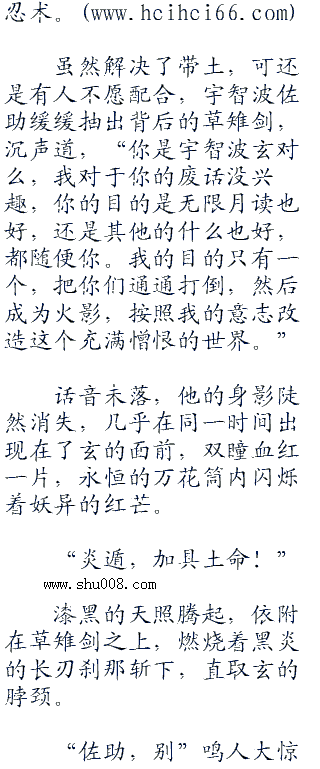 忍术。(www.hcihci66.com)
虽然解决了带土，可还
是有人不愿配合，宇智波佐
助缓缓抽出背后的草雉剑，
沉声道，“你是宇智波玄对
么，我对于你的废话没兴
趣，你的目的是无限月读也
好，还是其他的什么也好，
都随便你。我的目的只有一
个，把你们通通打倒，然后
成为火影，按照我的意志改
造这个充满憎恨的世界。”
话音未落，他的身影陡
然消失，几乎在同一时间出
现在了玄的面前，双瞳血红
一片，永恒的万花筒内闪烁
着妖异的红芒。
“炎遁，加具土命！”
www.shu008.com
漆黑的天照腾起，依附
在草雉剑之上，燃烧着黑炎
的长刃刹那斩下，直取玄的
脖颈。
“佐助，别”鸣人大惊